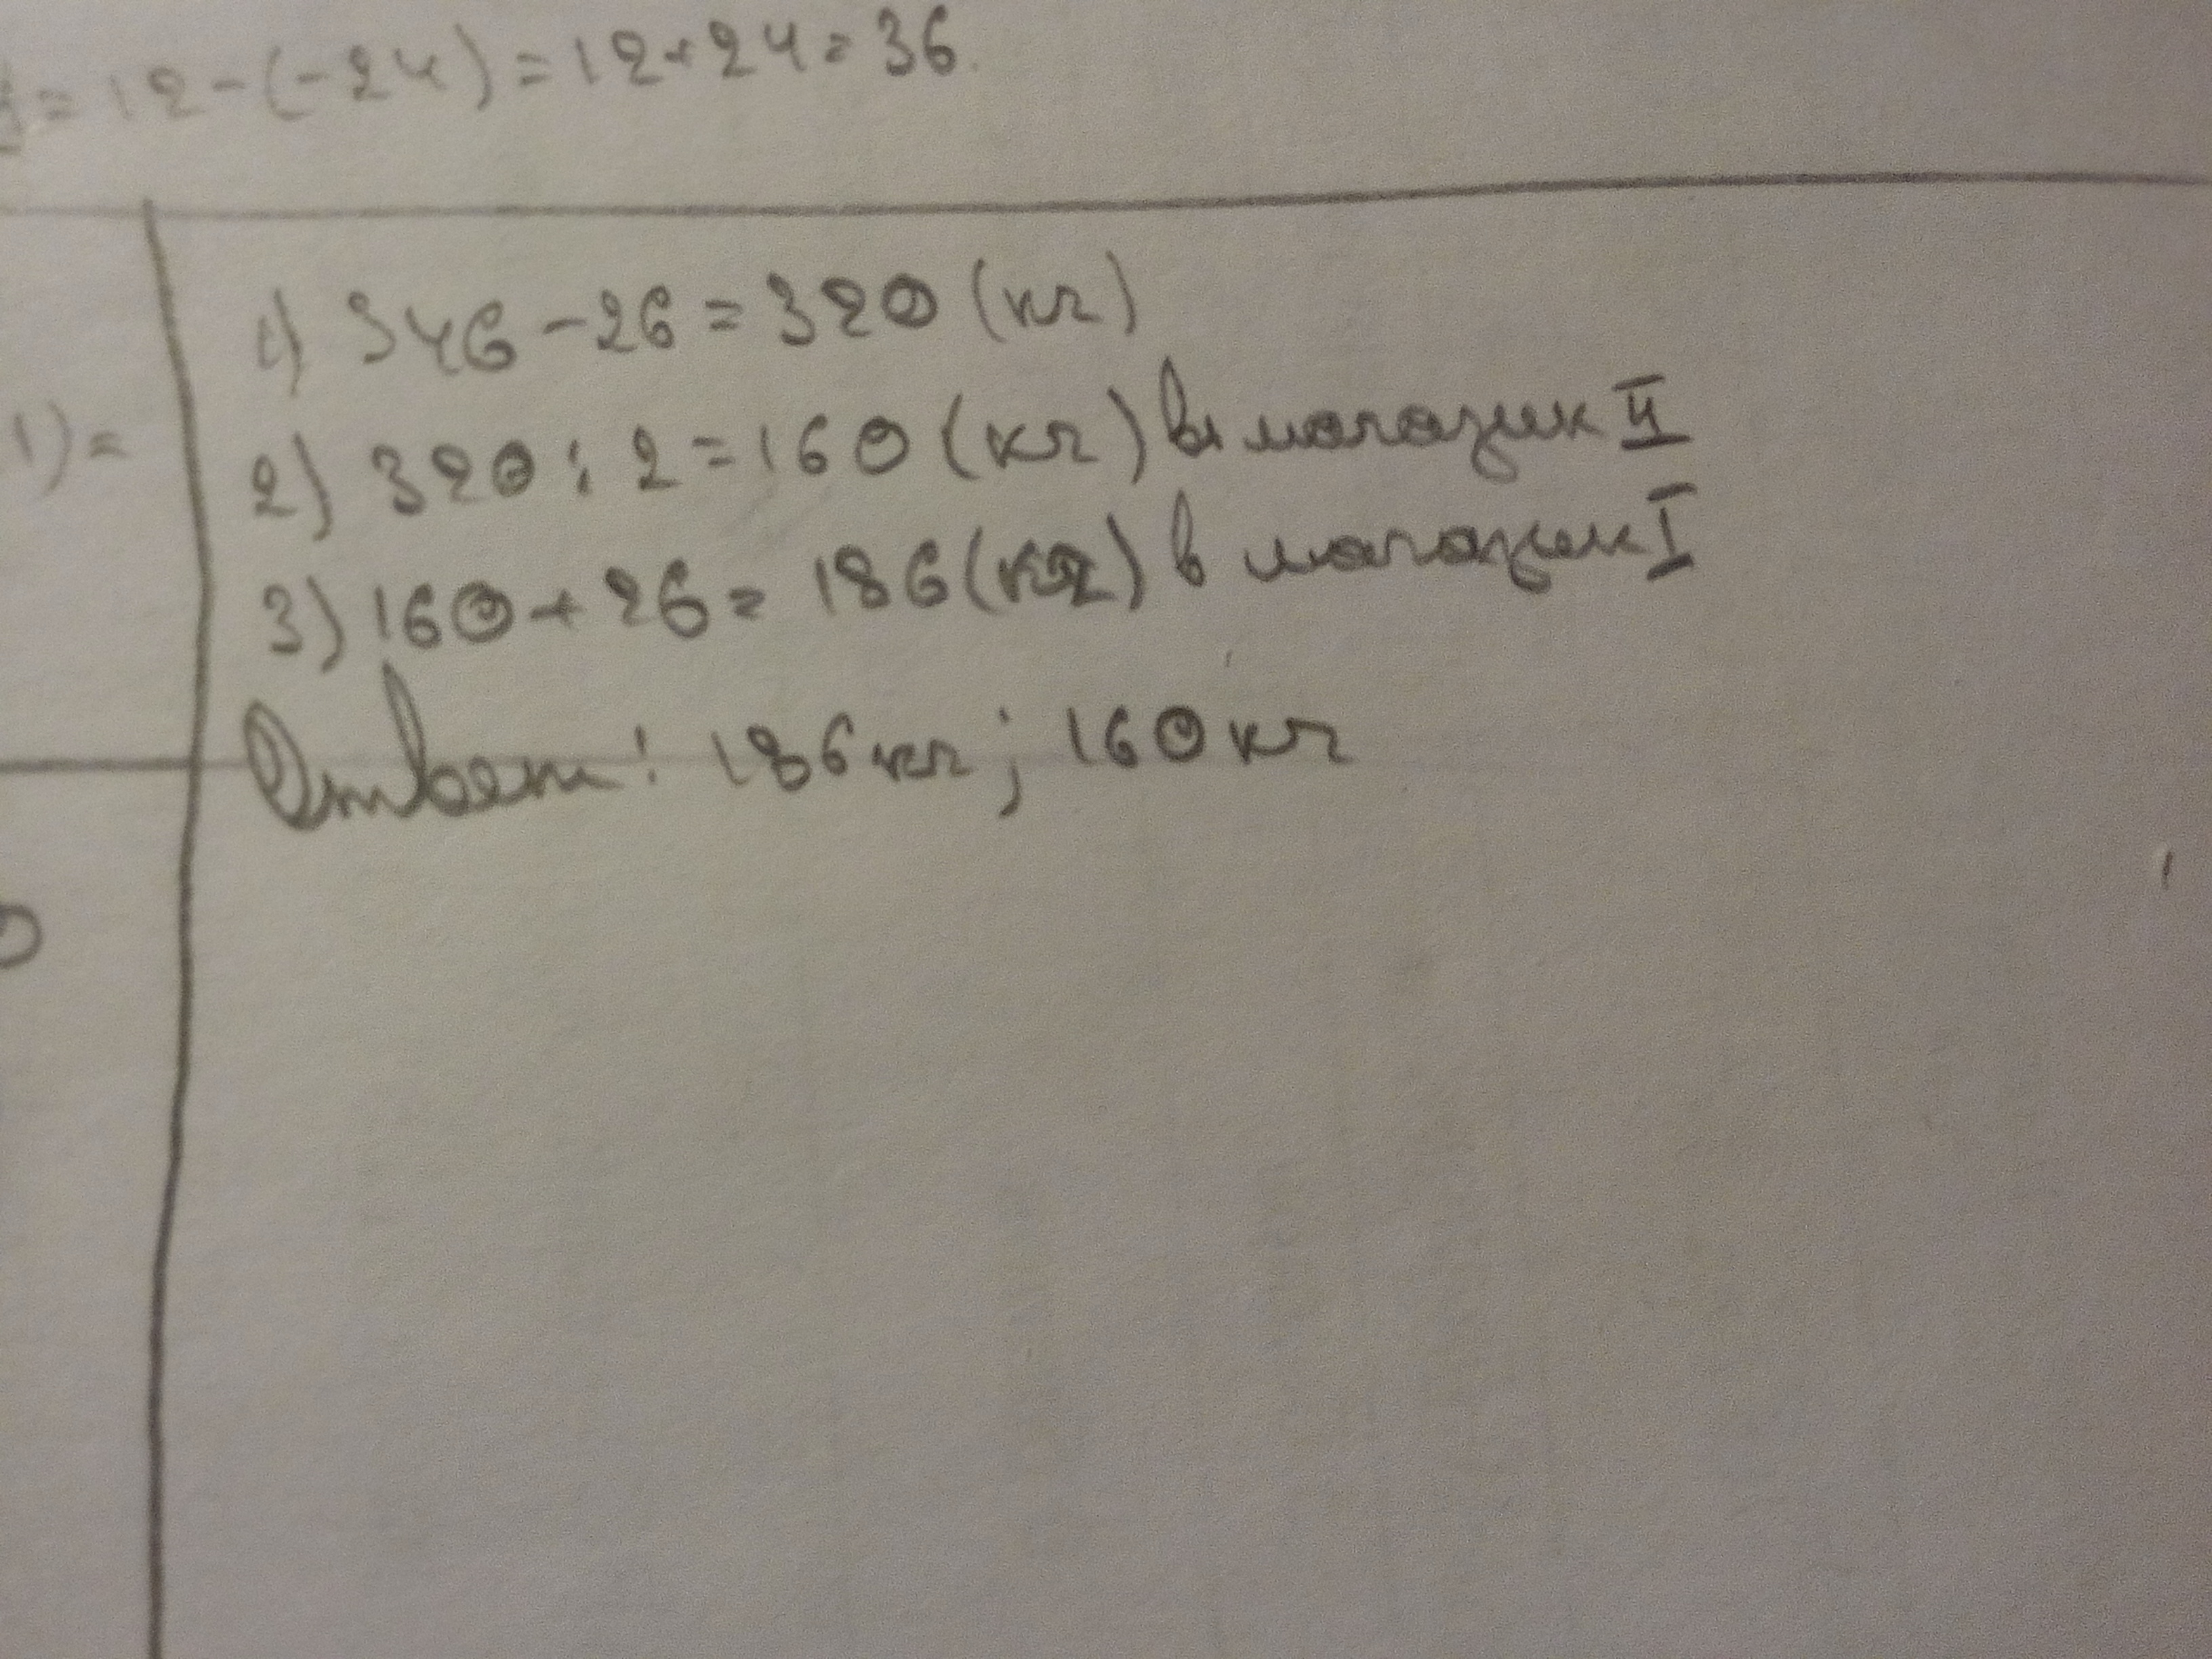 = 12 - (-24) = 12 + 24 = 36.
1) 346 - 26 = 320 (кг)
1) =
2) 320 : 2 = 160 (кг) в магазин II
3) 160 + 26 = 186 (кг) в магазин I
Ответ: 186 кг; 160 кг